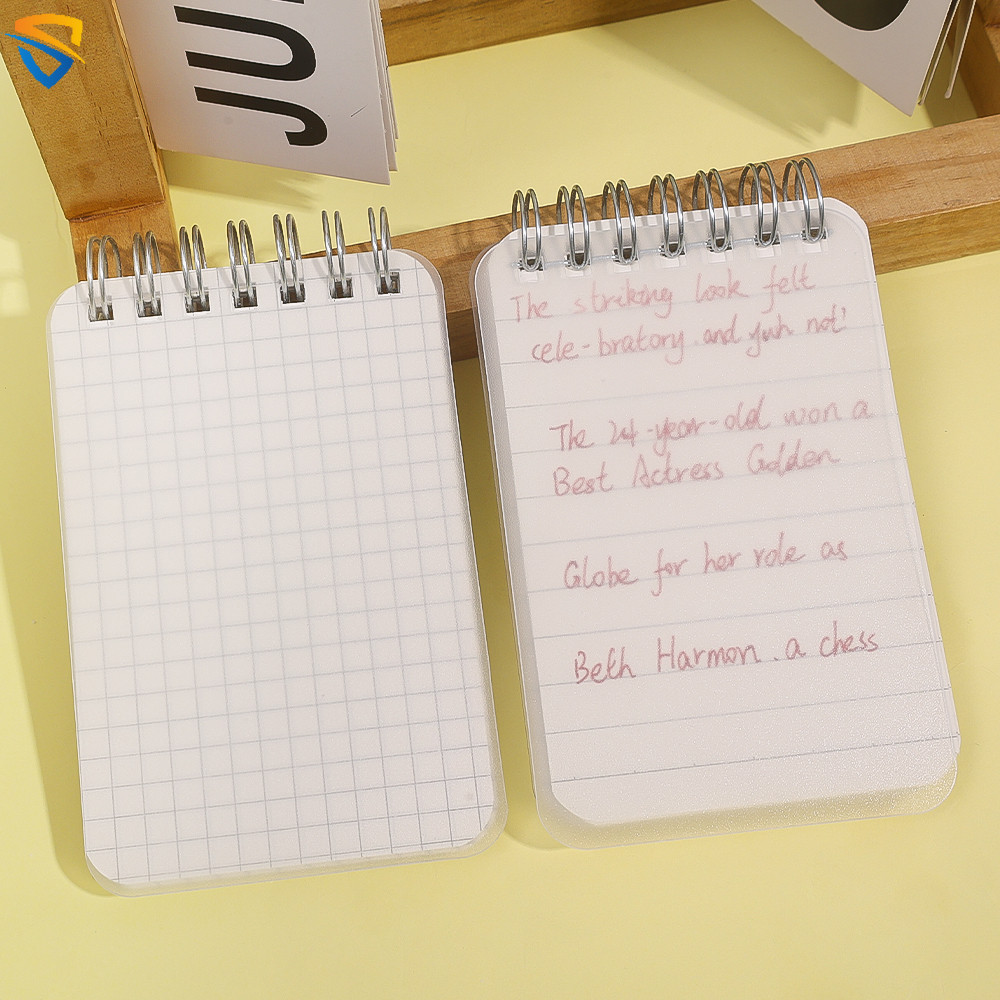 JU
The striking look felt
cele-bratory and yuh not'
The 24-year-old won a
Best Actress Golden
Globe for her role as
Beth Harmon . a chess